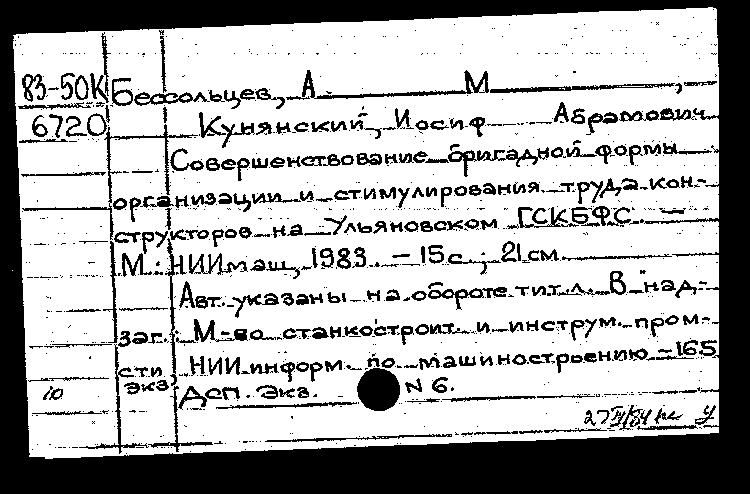 83-50К Бессольцев, А. М ,
6720 Кунянский, Иосиф Абрамович
Совершенствование бригадной формы
организации и стимулирования труда кон-
структоров на Ульяновском ГСКБФС. —
М.: НИИмаш, 1983. - 15 с.; 21 см.
Авт. указаны на обороте тит. л. В над-
заг.: М-во станкостроит. и инструм. пром-
сти, НИИ информ. по машиностроению - 165
экз. Дсп. Экз. N 6.
10